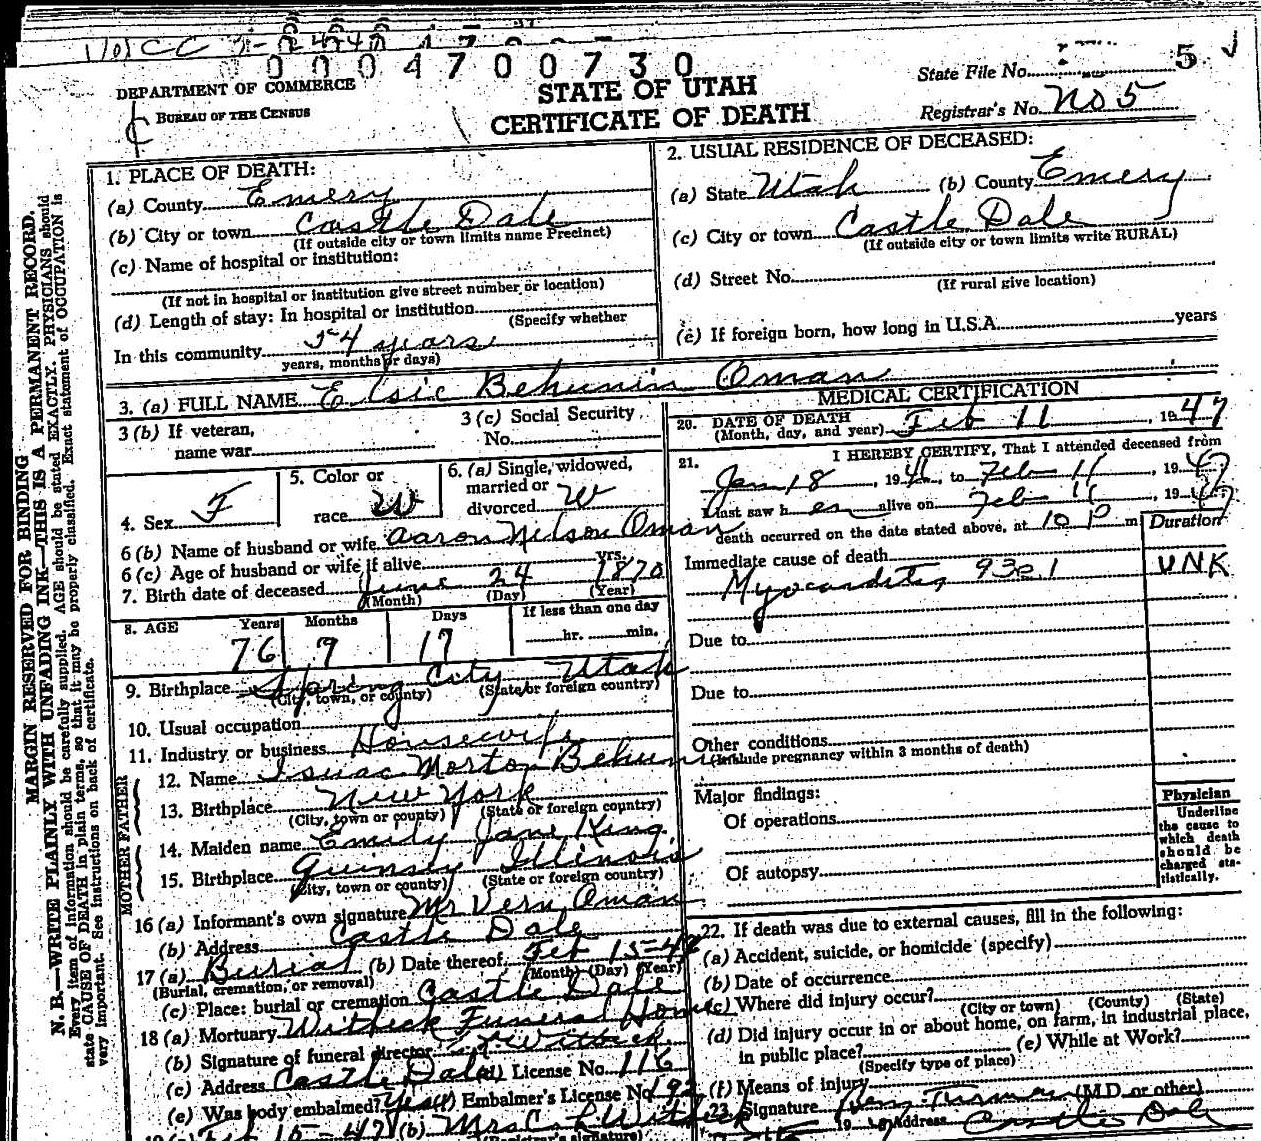 0004700730
DEPARTMENT OF COMMERCE
BUREAU OF THE CENSUS
STATE OF UTAH
CERTIFICATE OF DEATH
State File No. 5
Registrar's No. No 5
MARGIN RESERVED FOR BINDING
N. B.—WRITE PLAINLY WITH UNFADING INK—THIS IS A PERMANENT RECORD.
Every item of information should be carefully supplied. AGE should be stated EXACTLY. PHYSICIANS should
state CAUSE OF DEATH in plain terms, so that it may be properly classified. Exact statement of OCCUPATION is
very important. See instructions on back of certificate.
1. PLACE OF DEATH:
(a) County Emery
(b) City or town Castle Dale
(If outside city or town limits name Precinct)
(c) Name of hospital or institution:
(If not in hospital or institution give street number or location)
(d) Length of stay: In hospital or institution
(Specify whether
In this community 54 years
years, months or days)
2. USUAL RESIDENCE OF DECEASED:
(a) State Utah (b) County Emery
(c) City or town Castle Dale
(If outside city or town limits write RURAL)
(d) Street No.
(If rural give location)
(e) If foreign born, how long in U.S.A. years
3. (a) FULL NAME Elsie Behunin Oman
3 (b) If veteran,
name war
3 (c) Social Security
No.
4. Sex F
5. Color or
race W
6. (a) Single, widowed,
married or
divorced W
6 (b) Name of husband or wife Aaron Nelson Oman
6 (c) Age of husband or wife if alive yrs.
7. Birth date of deceased June 24 1870
(Month) (Day) (Year)
8. AGE Years Months Days If less than one day
76 9 17 hr. min.
9. Birthplace Spring City Utah
(City, town, or county) (State or foreign country)
10. Usual occupation
11. Industry or business Housewife
MOTHER FATHER
12. Name Isaac Morton Behunin
13. Birthplace New York
(City, town or county) (State or foreign country)
14. Maiden name Emily Jane King
15. Birthplace Quinsy Illinois
(City, town or county) (State or foreign country)
16 (a) Informant's own signature Mr Vern Oman
(b) Address Castle Dale
17 (a) Burial (b) Date thereof Feb 15-47
(Burial, cremation, or removal) (Month) (Day) (Year)
(c) Place: burial or cremation Castle Dale
18 (a) Mortuary Witbeck Funeral Home
(b) Signature of funeral director Witbeck
(c) Address Castle Dale (d) License No. 116
(e) Was body embalmed? Yes (f) Embalmer's License No. 192
19 (a) Feb 15-47 (b) Mrs C L Witbeck
(Registrar's signature)
MEDICAL CERTIFICATION
20. DATE OF DEATH
(Month, day, and year) Feb 11, 1947
21. I HEREBY CERTIFY, That I attended deceased from
Jan 18, 1946, to Feb 11, 1947
I last saw her alive on Feb 11, 1947
death occurred on the date stated above, at 10 P m
Duration
Immediate cause of death
Myocarditis 93e1 UNK
Due to
Due to
Other conditions
(Include pregnancy within 3 months of death)
Major findings:
Of operations
Of autopsy
Physician
Underline
the cause to
which death
should be
charged sta-
tistically.
22. If death was due to external causes, fill in the following:
(a) Accident, suicide, or homicide (specify)
(b) Date of occurrence
(c) Where did injury occur?
(City or town) (County) (State)
(d) Did injury occur in or about home, on farm, in industrial place,
in public place? (e) While at Work?
(Specify type of place)
(f) Means of injury
23. Signature Turman (M.D. or other)
19 Address Castle Dale